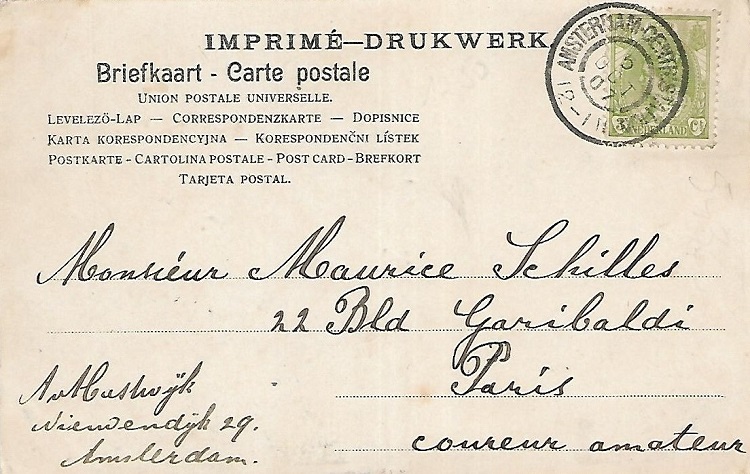 IMPRIMÉ—DRUKWERK
Briefkaart - Carte postale
UNION POSTALE UNIVERSELLE.
LEVELEZÖ-LAP — CORRESPONDENZKARTE — DOPISNICE
KARTA KORESPONDENCYJNA — KORESPONDENČNI LÍSTEK
POSTKARTE - CARTOLINA POSTALE - POST CARD - BREFKORT
TARJETA POSTAL.
AMSTERDAM
NEDERLAND
Monsiéur Maurice Schilles
22 Bld Garibaldi
Paris
coureur amateur
Nieuwendijk 29.
Amsterdam.